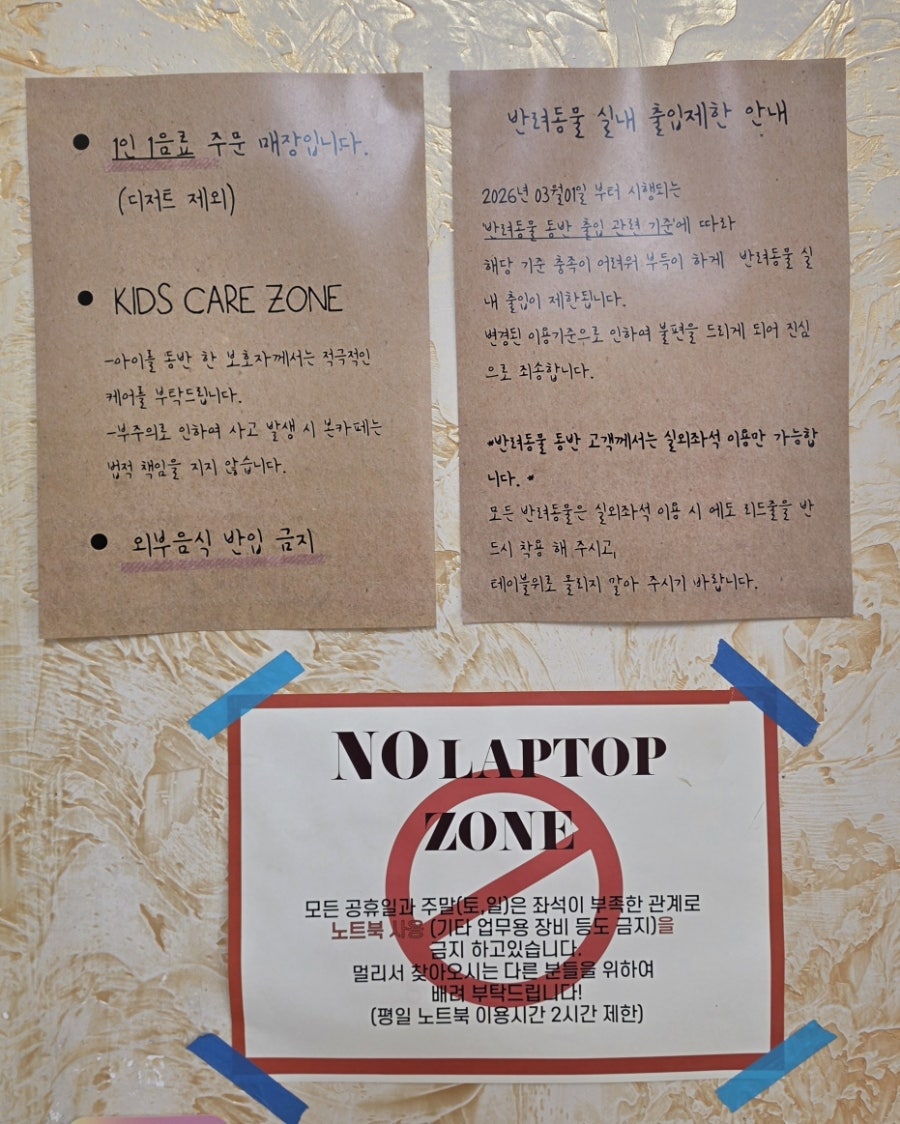 ● 1인 1음료 주문 매장입니다.
(디저트 제외)
● KIDS CARE ZONE
-아이를 동반 한 보호자께서는 적극적인
케어를 부탁드립니다.
-부주의로 인하여 사고 발생 시 본카페는
법적 책임을 지지 않습니다.
● 외부음식 반입 금지
반려동물 실내 출입제한 안내
2026년 03월01일 부터 시행되는
반려동물 동반 출입 관련 기준'에 따라
해당 기준 충족이 어려워 부득이 하게 반려동물 실
내 출입이 제한됩니다.
변경된 이용기준으로 인하여 불편을 드리게 되어 진심
으로 죄송합니다.
•반려동물 동반 고객께서는 실외좌석 이용만 가능합
니다. •
모든 반려동물은 실외좌석 이용 시 에도 리드줄을 반
드시 착용 해 주시고,
테이블위로 올리지 말아 주시기 바랍니다.
NO LAPTOP
ZONE
모든 공휴일과 주말(토,일)은 좌석이 부족한 관계로
노트북 사용 (기타 업무용 장비 등도 금지)을
금지 하고있습니다.
멀리서 찾아오시는 다른 분들을 위하여
배려 부탁드립니다!
(평일 노트북 이용시간 2시간 제한)